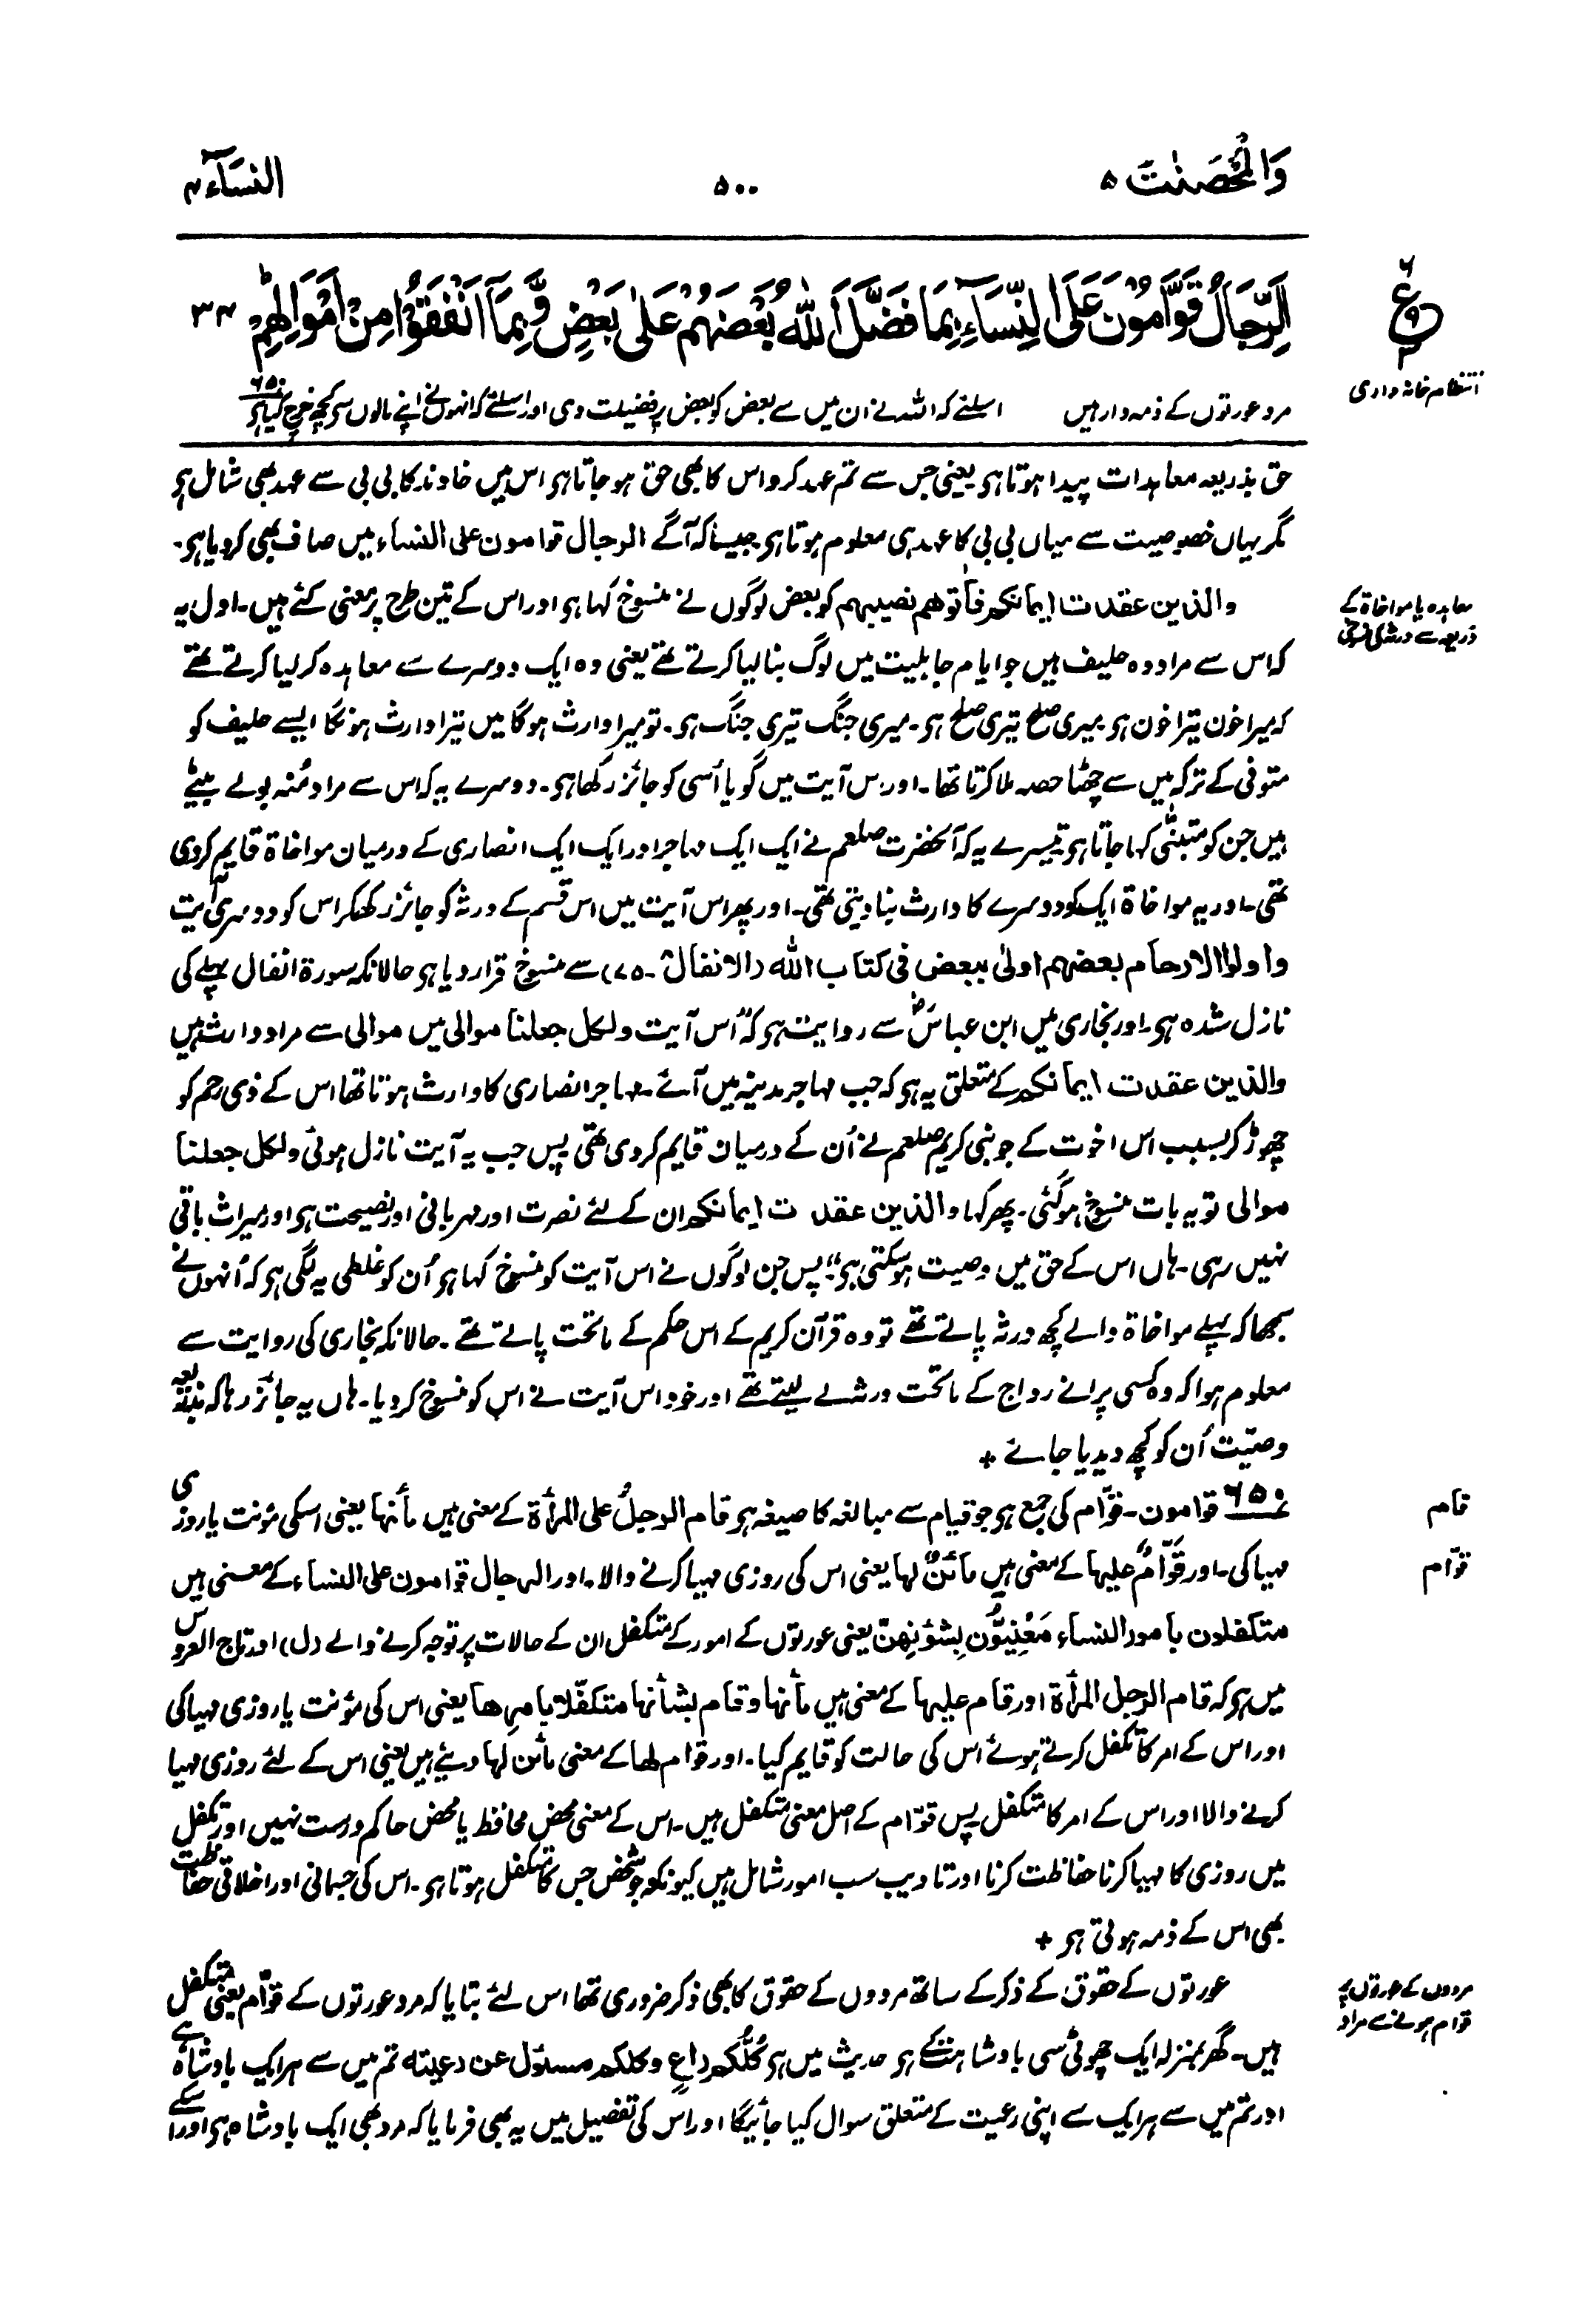 وَالْمُحْصَنٰتُ ۵
۵۰۰
النسآء ۴
اَلرِّجَالُ قَوّٰمُوْنَ عَلَى النِّسَآءِ بِمَا فَضَّلَ اللّٰهُ بَعْضَهُمْ عَلٰى بَعْضٍ وَّبِمَآ اَنْفَقُوْا مِنْ اَمْوَالِهِمْ ۳۴
ع
انتظام خانہ داری
مرد عورتوں کے ذمہ دار ہیں اسلئے کہ اللہ نے ان میں سے بعض کو بعض پر فضیلت دی اور اسلئے کہ انہوں نے اپنے مالوں سے کچھ خرچ کیا ہے ۶۵۰
حق بذریعہ معاہدات پیدا ہوتا ہے یعنی جس سے تم عہد کرو اس کا بھی حق ہو جاتا ہے اس میں خاوند کا بی بی سے عہد بھی شامل ہے
مگر یہاں خصوصیت سے میاں بی بی کا عہد ہی معلوم ہوتا ہے جیسا کہ آگے الرجال قوامون علی النساء میں صاف بھی کر دیا ہے۔
معاہدہ یا مواخاۃ کے
ذریعہ سے ورثہ کی منسوخی
والذین عقدت ایمانکم فأتوهم نصیبهم کو بعض لوگوں نے منسوخ کہا ہے اور اس کے تین طرح پر معنی کئے ہیں۔ اول یہ
کہ اس سے مراد وہ حلیف ہیں جو ایام جاہلیت میں لوگ بنا لیا کرتے تھے یعنی وہ ایک دوسرے سے معاہدہ کر لیا کرتے تھے
کہ میرا خون تیرا خون ہے میری صلح تیری صلح ہے۔ میری جنگ تیری جنگ ہے۔ تو میرا وارث ہوگا میں تیرا وارث ہونگا ایسے حلیف کو
متوفی کے ترکہ میں سے چھٹا حصہ ملا کرتا تھا۔ اور اس آیت میں گویا اُسی کو جائز رکھا ہے۔ دوسرے یہ کہ اس سے مراد مُنہ بولے بیٹے
ہیں جن کو متبنّٰی کہا جاتا ہے تیسرے یہ کہ آنحضرت صلعم نے ایک ایک مہاجر اور ایک ایک انصاری کے درمیان مواخاۃ قایم کردی
تھی۔ اور یہ مواخاۃ ایک کو دوسرے کا وارث بنا دیتی تھی۔ اور پھر اس آیت میں اس قسم کے ورثہ کو جائز رکھکر اس کو دوسری آیت
واولوا الارحام بعضهم اولیٰ ببعض فی کتاب الله (الانفال ۸۔ ۷۵) سے منسوخ قرار دیا ہے حالانکہ سورۃ انفال پہلے کی
نازل شدہ ہے۔ اور بخاری میں ابن عباسؓ سے روایت ہے کہ ”اس آیت ولکل جعلنا موالی میں موالی سے مراد وارث ہیں
والذین عقدت ایمانکم کے متعلق یہ ہے کہ جب مہاجر مدینہ میں آئے۔ مہاجر انصاری کا وارث ہوتا تھا اس کے ذی رحم کو
چھوڑ کر بسبب اس اخوت کے جو نبی کریم صلعم نے اُن کے درمیان قایم کر دی تھی پس جب یہ آیت نازل ہوئی ولکل جعلنا
موالی تو یہ بات منسوخ ہوگئی۔ پھر کہا والذین عقدت ایمانکم ان کے لئے نصرت اور مہربانی اور نصیحت ہے اور میراث باقی
نہیں رہی۔ ہاں اس کے حق میں وصیت ہو سکتی ہے“ پس جن لوگوں نے اس آیت کو منسوخ کہا ہے اُن کو غلطی یہ لگی ہے کہ اُنہوں نے
سمجھا کہ پہلے مواخاۃ والے کچھ ورثہ پاتے تھے تو وہ قرآن کریم کے اس حکم کے ماتحت پاتے تھے۔ حالانکہ بخاری کی روایت سے
معلوم ہوا کہ وہ کسی پرانے رواج کے ماتحت ورثہ لے لیتے تھے اور خود اس آیت نے اس کو منسوخ کر دیا۔ ہاں یہ جائز رہا کہ بذریعہ
وصیّت اُن کو کچھ دیدیا جائے +
قام
۶۵۰ قوامون۔ قوّام کی جمع ہے جو قیام سے مبالغہ کا صیغہ ہے قام الرجلُ علی المرأۃ کے معنی ہیں مأنہا یعنی اسکی مؤنت یا روزی
قوّام
مہیا کی۔ اور قَوّامٌ علیہا کے معنی ہیں مائنٌ لہا یعنی اس کی روزی مہیا کرنے والا۔ اور الرجال قوامون علی النساء کے معنی ہیں
متکفلون بأمور النساء مَعْنِیُّون بِشؤنِهنّ یعنی عورتوں کے امور کے متکفل ان کے حالات پر توجہ کرنے والے (ل) اور تاج العروس
میں ہے کہ قام الرجل المرأۃ اور قام علیہا کے معنی ہیں مأنہا وقام بشأنہا متکفلا بامرها یعنی اس کی مؤنت یا روزی مہیا کی
اور اس کے امر کا تکفل کرتے ہوئے اس کی حالت کو قایم کیا۔ اور قوام لها کے معنی مائن لہا دیئے ہیں یعنی اس کے لئے روزی مہیا
کرنے والا اور اس کے امر کا متکفل پس قوّام کے اصل معنی متکفل ہیں۔ اس کے معنی محض محافظ یا محض حاکم درست نہیں اور تکفل
میں روزی کا مہیا کرنا حفاظت کرنا اور تادیب سب امور شامل ہیں کیونکہ جو شخص جس کا متکفل ہوتا ہے۔ اس کی جسمانی اور اخلاقی حفاظت
بھی اس کے ذمہ ہوتی ہے +
مردوں کے عورتوں پر
قوام ہونے سے مراد
عورتوں کے حقوق کے ذکر کے ساتھ مردوں کے حقوق کا بھی ذکر ضروری تھا اس لئے بتایا کہ مرد عورتوں کے قوّام یعنی متکفل
ہیں۔ گھر بمنزلہ ایک چھوٹی سی بادشاہت کے ہے حدیث میں ہے کُلُّکم راعٍ وکلکم مسئول عن رعیتہ تم میں سے ہر ایک بادشاہ ہے
اور تم میں سے ہر ایک سے اپنی رعیت کے متعلق سوال کیا جائیگا اور اس کی تفصیل میں یہ بھی فرمایا کہ مرد بھی ایک بادشاہ ہے اور اسکے